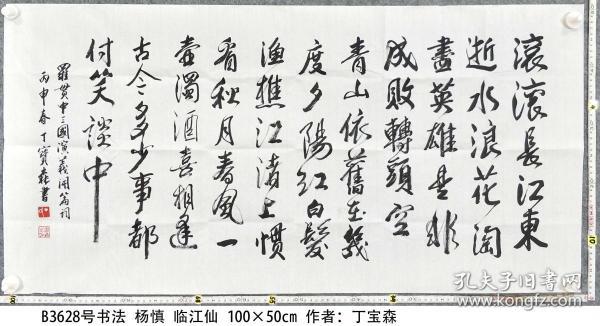 滚滚長江東
逝水浪花淘
盡英雄是非
成敗轉頭空
青山依舊在幾
度夕陽紅白髮
漁樵江渚上慣
看秋月春風一
壺濁酒喜相逢
古今多少事都
付笑談中
羅貫中三國演義開篇詞
丙申春丁寶森書
孔夫子旧书网
B3628号书法 杨慎 临江仙 100×50cm 作者：丁宝森